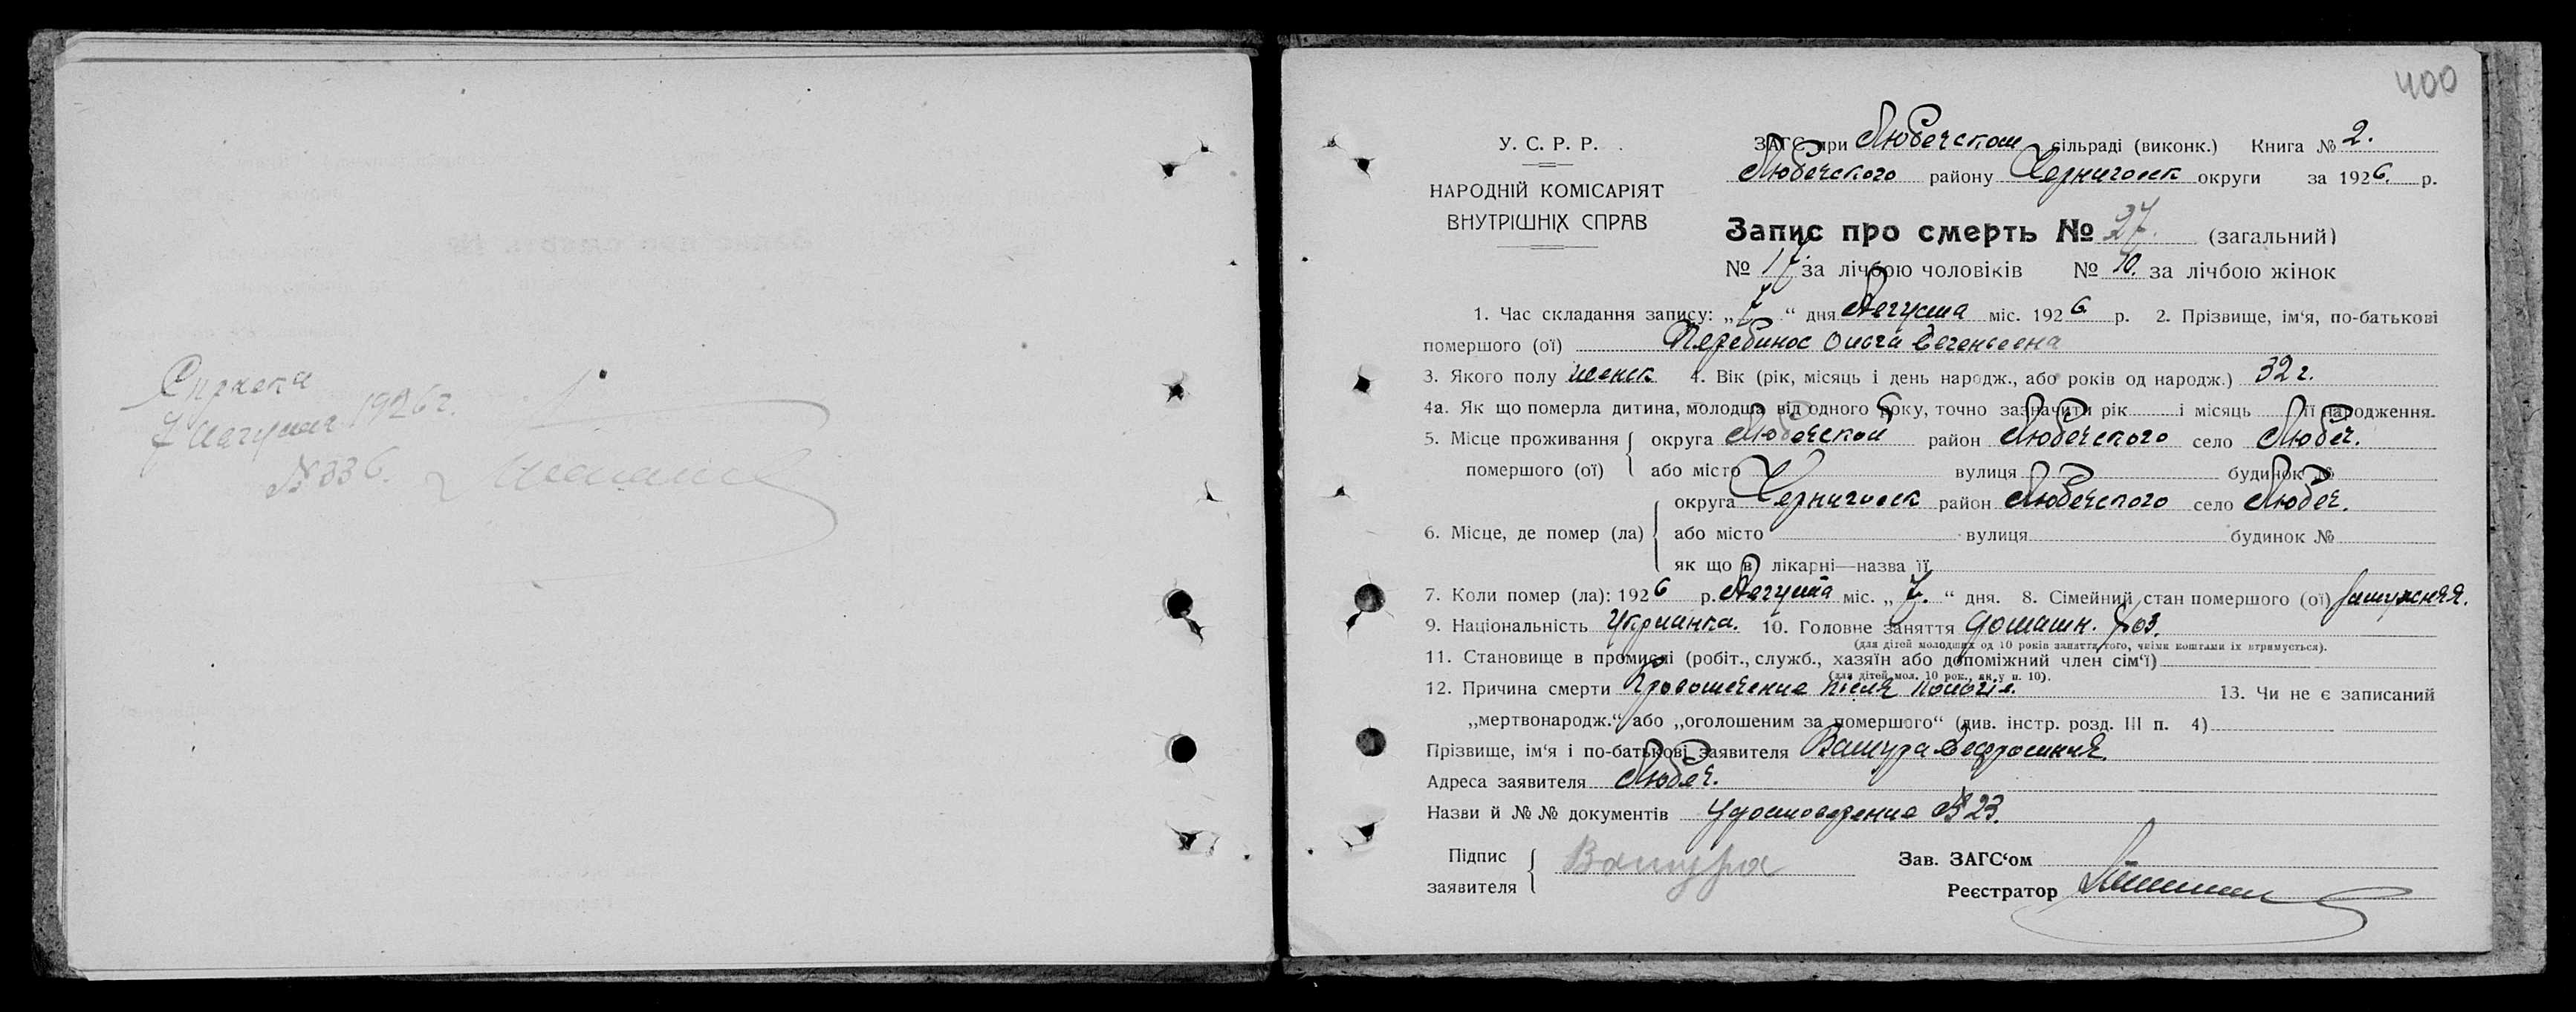 Справка
7 Августа 1926 г.
№ 336.
400
У. С. Р. Р.
НАРОДНІЙ КОМІСАРІЯТ
ВНУТРІШНІХ СПРАВ
ЗАГС при Любечском сільраді (виконк.) Книга № 2.
Любечского району Черниговск округи за 1926. р.
Запис про смерть № 27. (загальний)
№ 17. за лічбою чоловіків № 10. за лічбою жінок
1. Час складання запису: „7“ дня Августа міс. 1926 р. 2. Прізвище, ім‘я, по-батькові
помершого (ої) Перебинос Ольга Евгеньевна
3. Якого полу женск 4. Вік (рік, місяць і день народж., або років од народж.) 32 г.
4а. Як що померла дитина, молодша від одного року, точно зазначити рік і місяць її народження.
5. Місце проживання помершого (ої) округа Любечской район Любечского село Любеч.
або місто вулиця будинок №
6. Місце, де помер (ла) округа Черниговск район Любечского село Любеч.
або місто вулиця будинок №
як що в лікарні—назва її
7. Коли помер (ла): 1926 р. Августа міс. „7.“ дня. 8. Сімейний стан помершого (ої) замужняя.
9. Національність Украинка. 10. Головне заняття домашн. хоз.
(для дітей молодших од 10 років заняття того, чиїми коштами їх втримується).
11. Становище в промислі (робіт., служб., хазяїн або допоміжний член сім‘ї)
(для дітей мол. 10 рок., як у п. 10).
12. Причина смерти Кровотечение після пологів. 13. Чи не є записаний
„мертвонародж.“ або „оголошеним за помершого“ (див. інстр. розд. III п. 4)
Прізвище, ім‘я і по-батькові заявителя Вашура Ефросиния
Адреса заявителя Любеч.
Назви й № № документів Удостоверение № 23.
Підпис заявителя Вашура
Зав. ЗАГС‘ом
Реєстратор